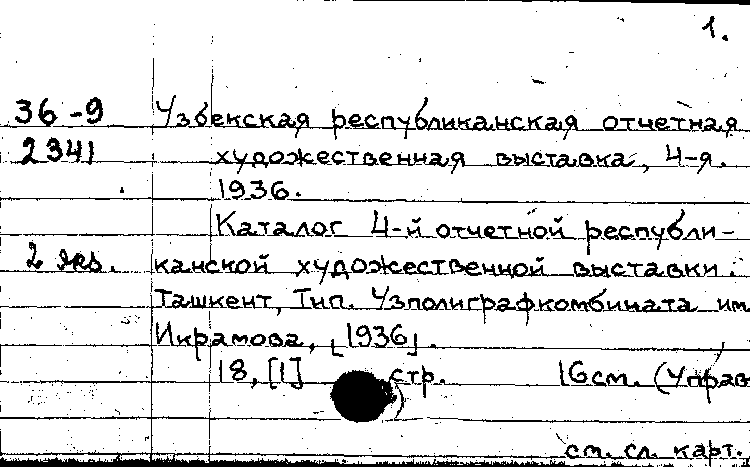 1.
36-9 Узбекская республиканская отчетная
2341 художественная выставка, 4-я.
1936.
Каталог 4-й отчетной республи-
2 экз. канской художественной выставки.
Ташкент, Тип. Узполиграфкомбината им
Икрамова, [1936].
18, [1] стр. 16см. (Управ
см. сл. карт.